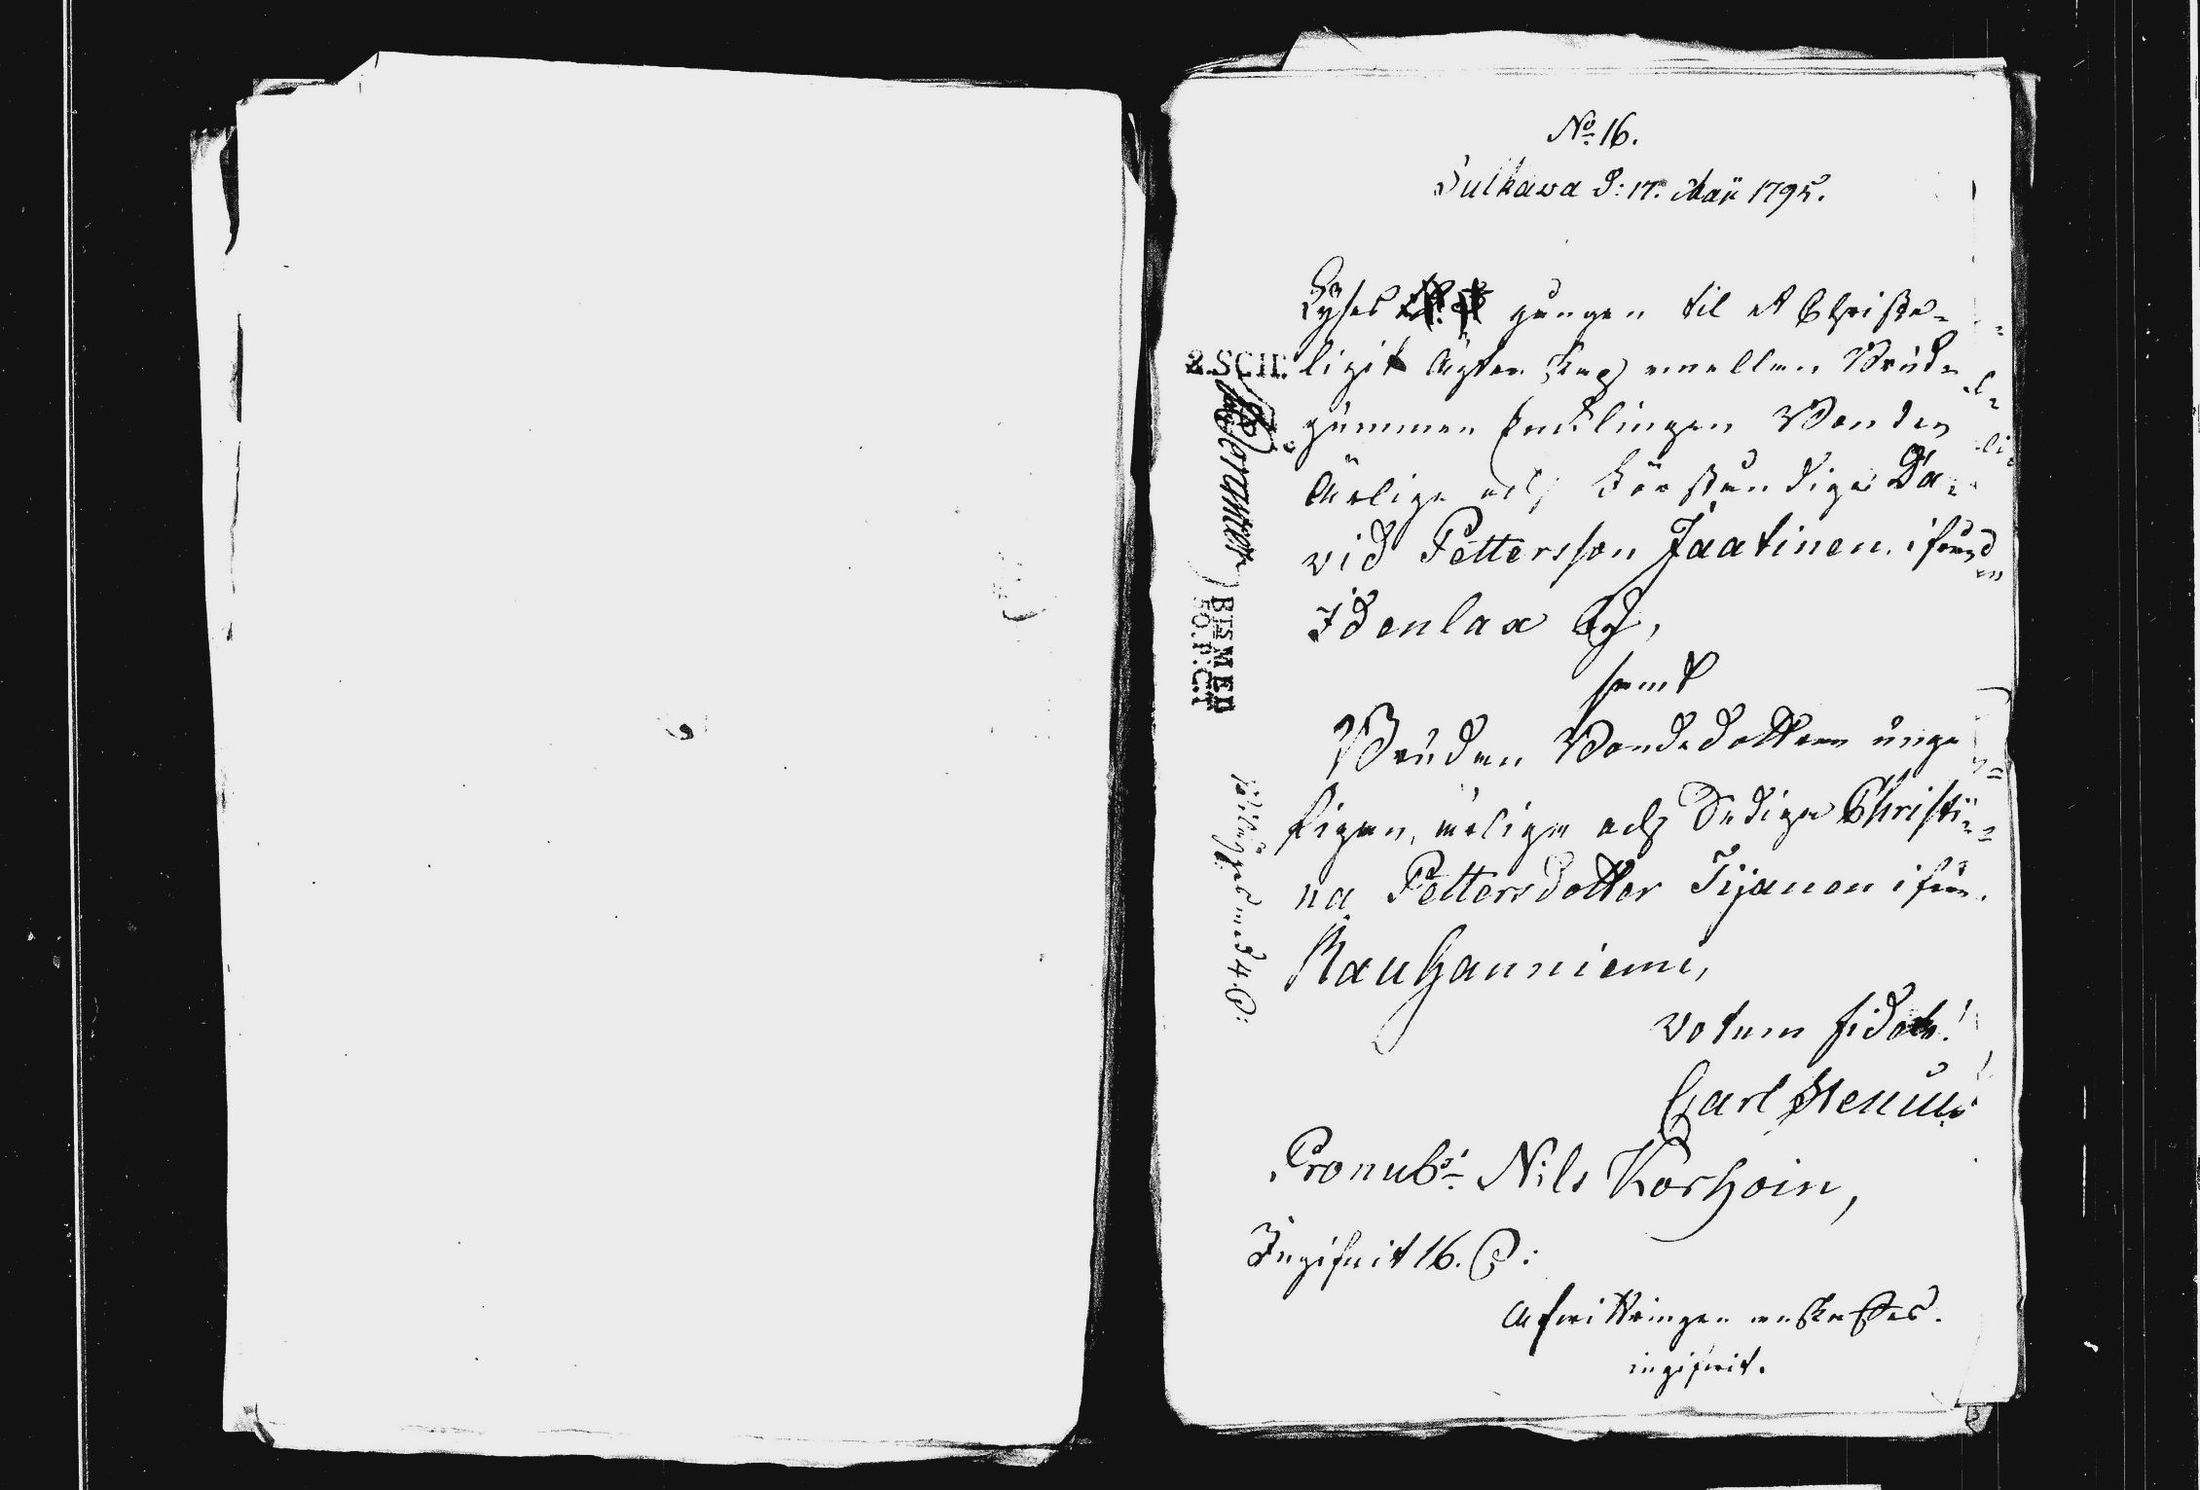 No 16.
Sulkawa d: 17. Maji 1795.
Lyses gången til et Christe-
ligit Ägtenskap emellan Brud-
gummen Ynglingen Bonden
Ärlige och Förståndige Da-
vid Pettersson Jaatinen ifrån
Idenlax By,
samt
Bruden Bondedottren unga
Pigan, ärliga och Dediga Christi-
na Pettersdotter Tijanen ifrån
Rauhanniemi,
votum fidete!
Carl Stenius
Pronubs: Nils Korhoin,
Ingifwit 16. S:
Afwittringen
ingifwit.
2.SCH.
BTS MED
50.P.C:T
med 4 S: